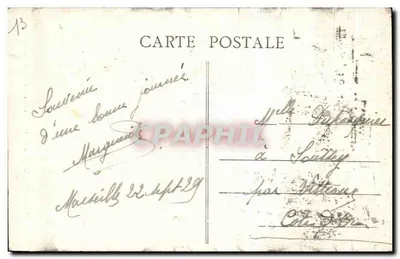 13
CARTE POSTALE
Souvenir
d'une bonne journée
Marguerite
Marseille 22 Sept 29
Melle
à
par Vitteaux
Côte d'Or
CPHRPHIL